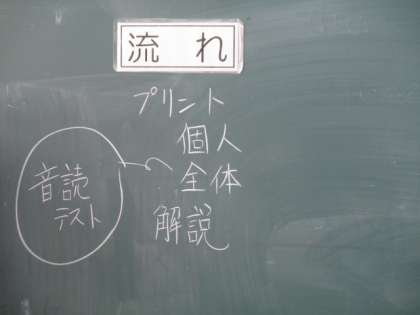 流れ
プリント
個人
全体
解説
音読
テスト